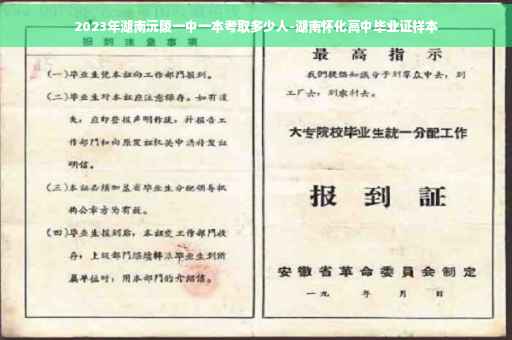 2023年湖南沅陵一中一本考取多少人-湖南怀化高中毕业证样本
报到注意事项
(一)毕业生凭本证向工作部门报到。
(二)毕业生对本证应注意保存。如有遗
失,应即登报声明作废,并报告工
作部门和向原发证机关申请补发证
明信。
(三)本证必须加盖省毕业生分配领导机
构公章方为有效。
(四)毕业生报到后,本证交工作部门收
存;上级部门继续转派毕业生到所
属单位时,用本部门的介绍信。
最高指示
我们提倡知识分子到群众中去,到
工厂去,到农村去。
大专院校毕业生统一分配工作
报到証
安徽省革命委員会制定
一九 年 月 日